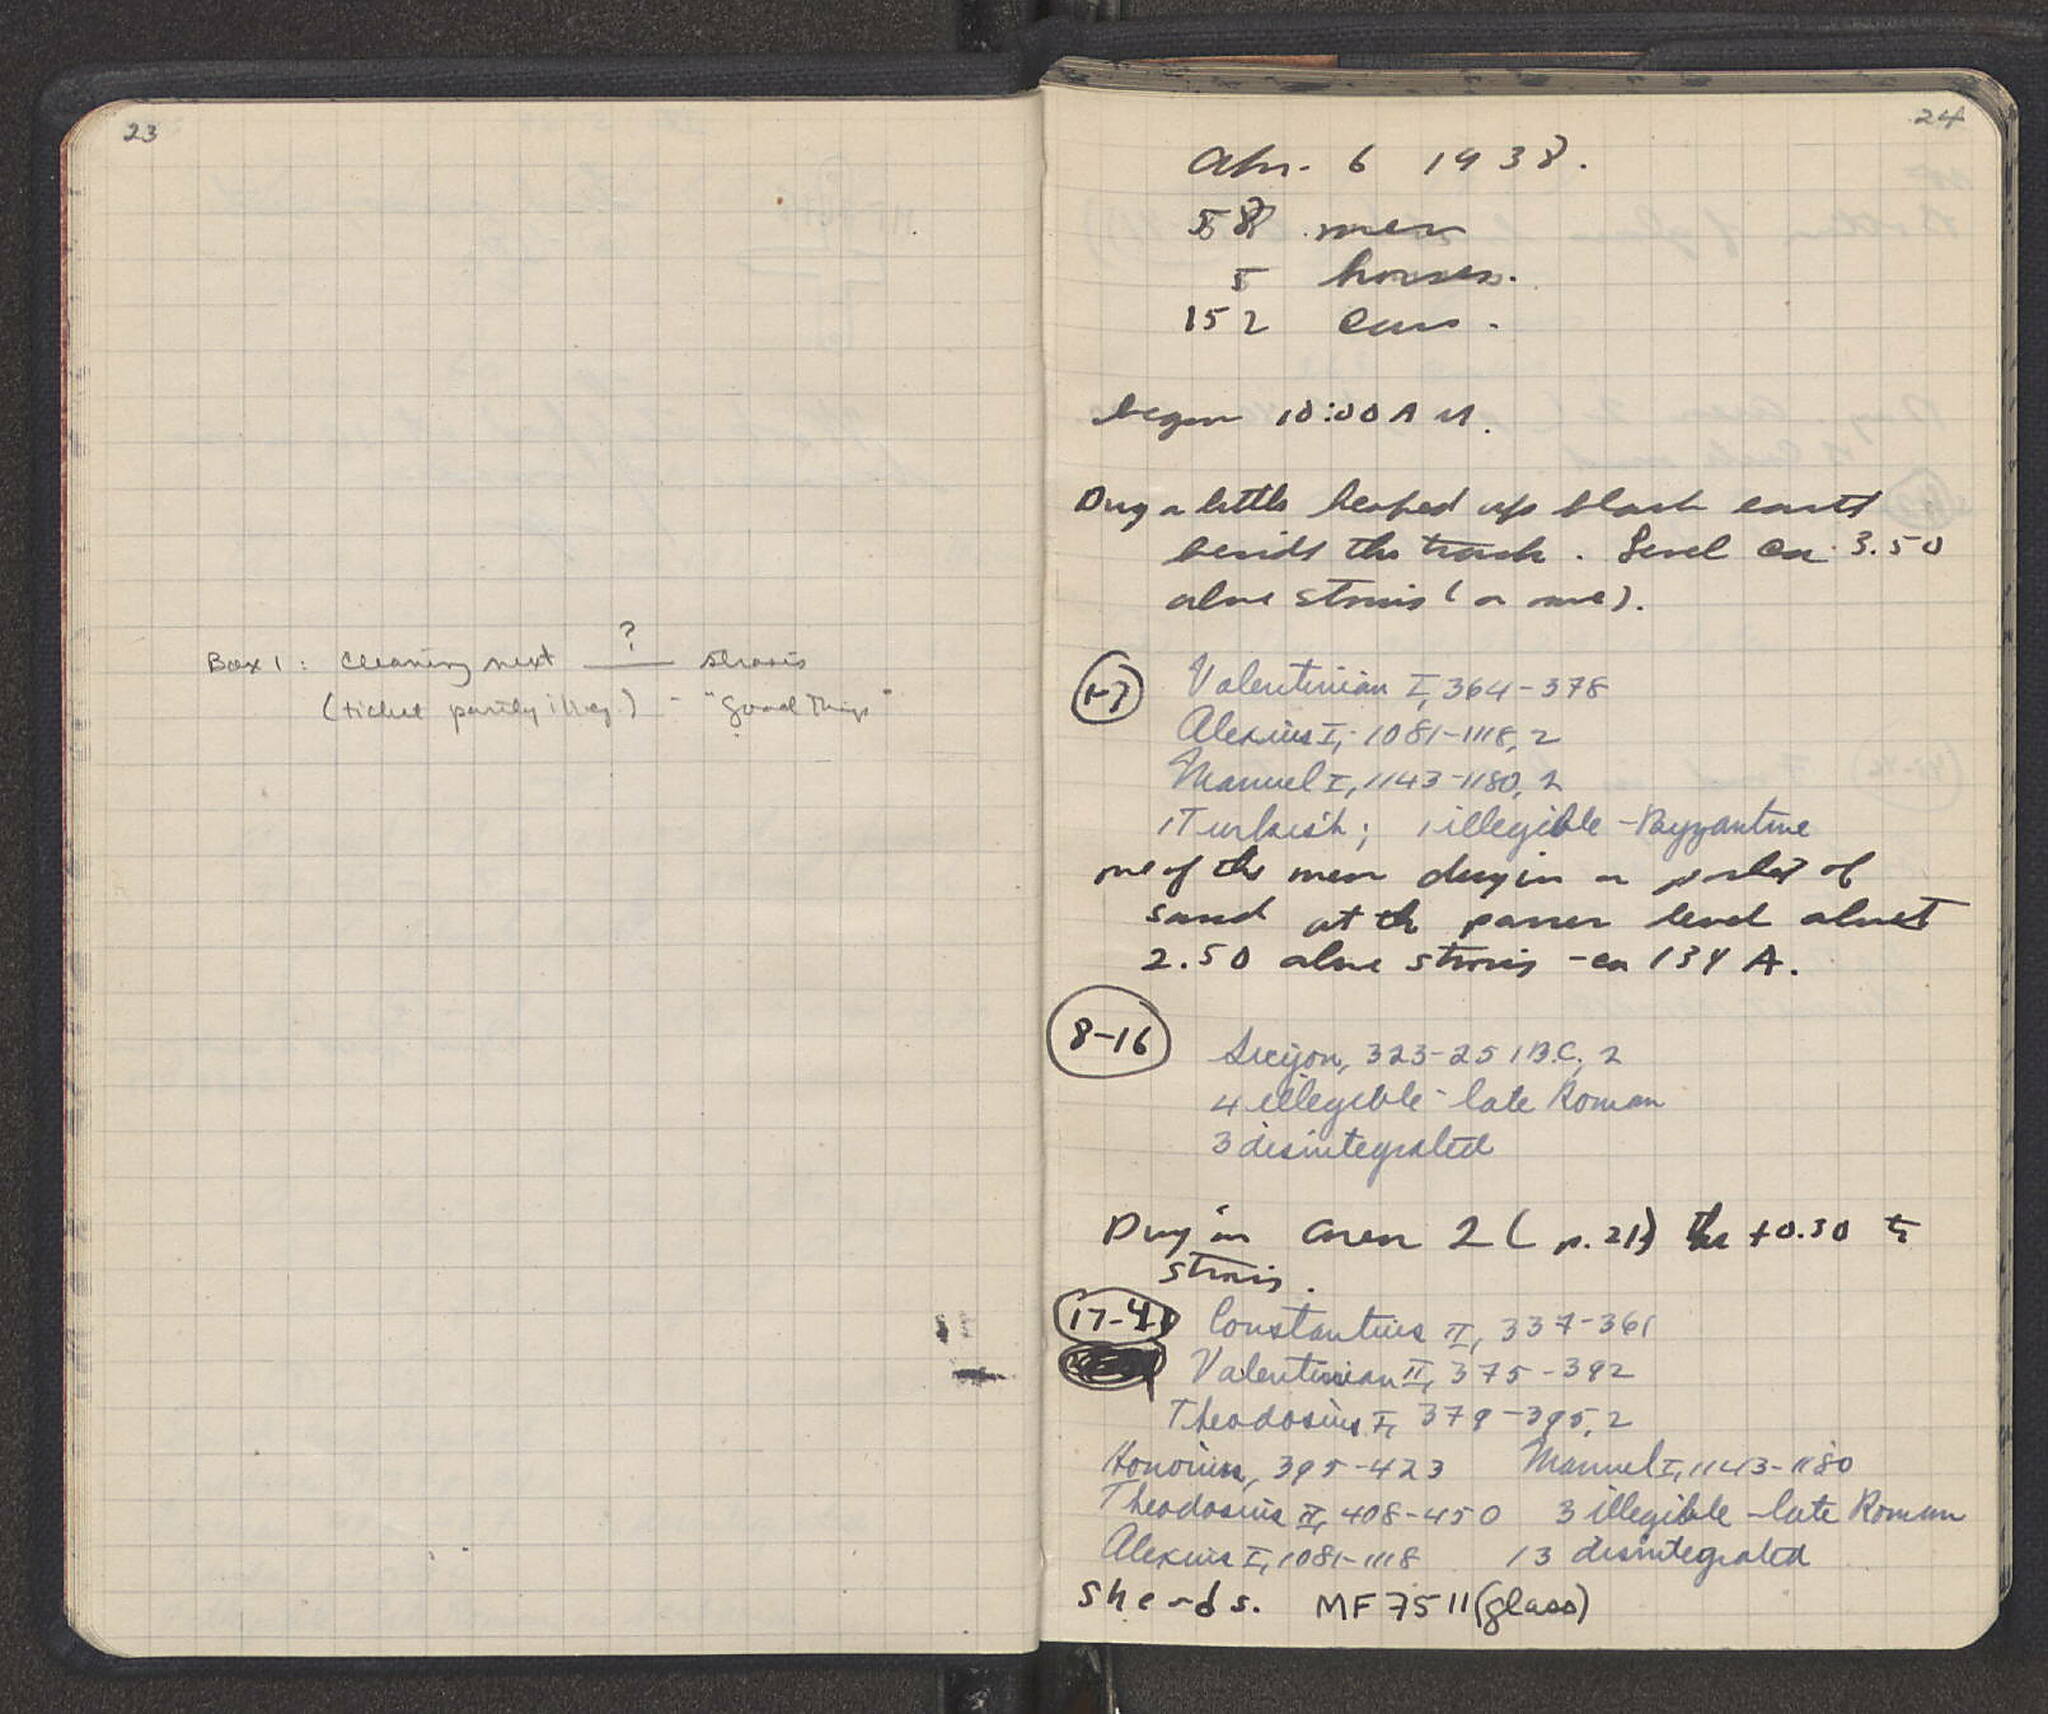 23
Box 1: Cleaning next ? strosis
(ticket partly illeg.) - "Good Things"
24
Apr. 6 1938.
58 men
5 horses.
152 cars.
began 10:00 AM.
Dug a little heaped up black earth
beside the track. Level ca. 3.50
above strosis (a one).
1-7 Valentinian I, 364-378
Alexius I, 1081-1118, 2
Manuel I, 1143-1180, 2
1 Turkish; 1 illegible - Byzantine
one of the men dug in a pocket of
sand at the level about
2.50 above strosis - ca 134 A.
8-16 Sicyon, 323-251 B.C., 2
4 illegible - late Roman
3 disintegrated
Dug in area 2 (p. 21) the +0.30 to
strosis.
17-41 Constantius II, 337-361
Valentinian II, 375-392
Theodosius I, 379-395, 2
Honorius, 395-423 Manuel I, 1143-1180
Theodosius II, 408-450 3 illegible - late Roman
Alexius I, 1081-1118 13 disintegrated
Sherds. MF 7511 (glass)